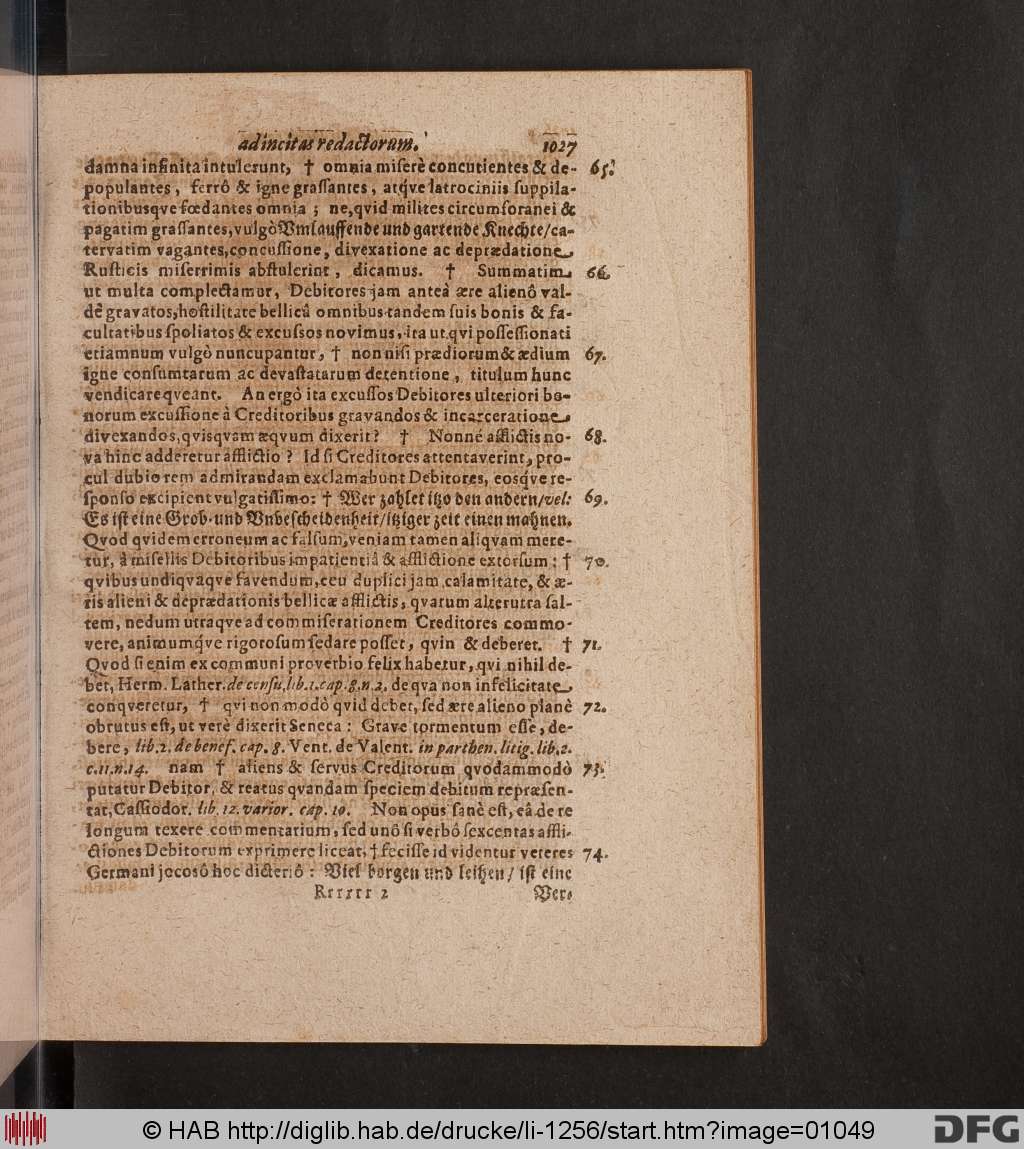 ad incitas redactorum. 1027
damna infinita intulerunt, † omnia miserè concutientes & de- 65.
populantes, ferrô & igne grassantes, atqve latrociniis suppila-
tionibusqve fœdantes omnia; ne, qvid milites circumforanei &
pagatim grassantes, vulgò Vmlauffende und gartende Knechte/ ca-
tervatim vagantes, concussione, divexatione ac deprædatione
Rusticis miserrimis abstulerint, dicamus. † Summatim 66.
ut multa complectamur, Debitores jam anteà ære alienô val-
dè gravatos, hostilitate bellicâ omnibus tandem suis bonis & fa-
cultatibus spoliatos & excussos novimus, ita ut qvi possessionati
etiamnum vulgò nuncupantur, † non nisi prædiorum & ædium 67.
igne consumtarum ac devastatarum detentione, titulum hunc
vendicare qveant. An ergò ita excussos Debitores ulteriori bo-
norum excussione à Creditoribus gravandos & incarceratione
divexandos, qvisqvam æqvum dixerit? † Nonné afflictis no- 68.
va hinc adderetur afflictio? Id si Creditores attentaverint, pro-
cul dubio rem admirandam exclamabunt Debitores, eosqve re-
sponso excipient vulgatissimo: † Wer zahlet itzo den andern/ vel: 69.
Es ist eine Grob- und Vnbescheidenheit/ itziger zeit einen mahnen.
Qvod qvidem erroneum ac falsum, veniam tamen aliqvam mere-
tur, à misellis Debitoribus impatientiâ & afflictione extorsum: † 70.
qvibus undiqvaqve favendum, ceu duplici jam calamitate, & æ-
ris alieni & deprædationis bellicæ afflictis, qvarum alterutra sal-
tem, nedum utraqve ad commiserationem Creditores commo-
vere, animumqve rigorosum sedare posset, qvin & deberet. † 71.
Qvod si enim ex communi proverbio felix habetur, qvi nihil de-
bet, Herm. Lather. de censu, lib. 1. cap. 8. n. 2. de qva non infelicitate
conqveretur, † qvi non modò qvid debet, sed ære alieno planè 72.
obrutus est, ut verè dixerit Seneca: Grave tormentum esse, de-
bere, lib. 2. de benef. cap. 8. Vent. de Valent. in parthen. litig. lib. 2.
c. 11. n. 14. nam † aliens & servus Creditorum qvodammodò 73.
putatur Debitor, & reatus qvandam speciem debitum repræsen-
tat, Cassiodor. lib. 12. varior. cap. 10. Non opus sanè est, eâ de re
longum texere commentarium, sed unô si verbô sexcentas affli-
ctiones Debitorum exprimere liceat, † fecisse id videntur veteres 74.
Germani jocosô hoc dicteriô: Viel borgen und leihen/ ist eine
Rrrrrr 2 Ver-
© HAB http://diglib.hab.de/drucke/li-1256/start.htm?image=01049
DFG